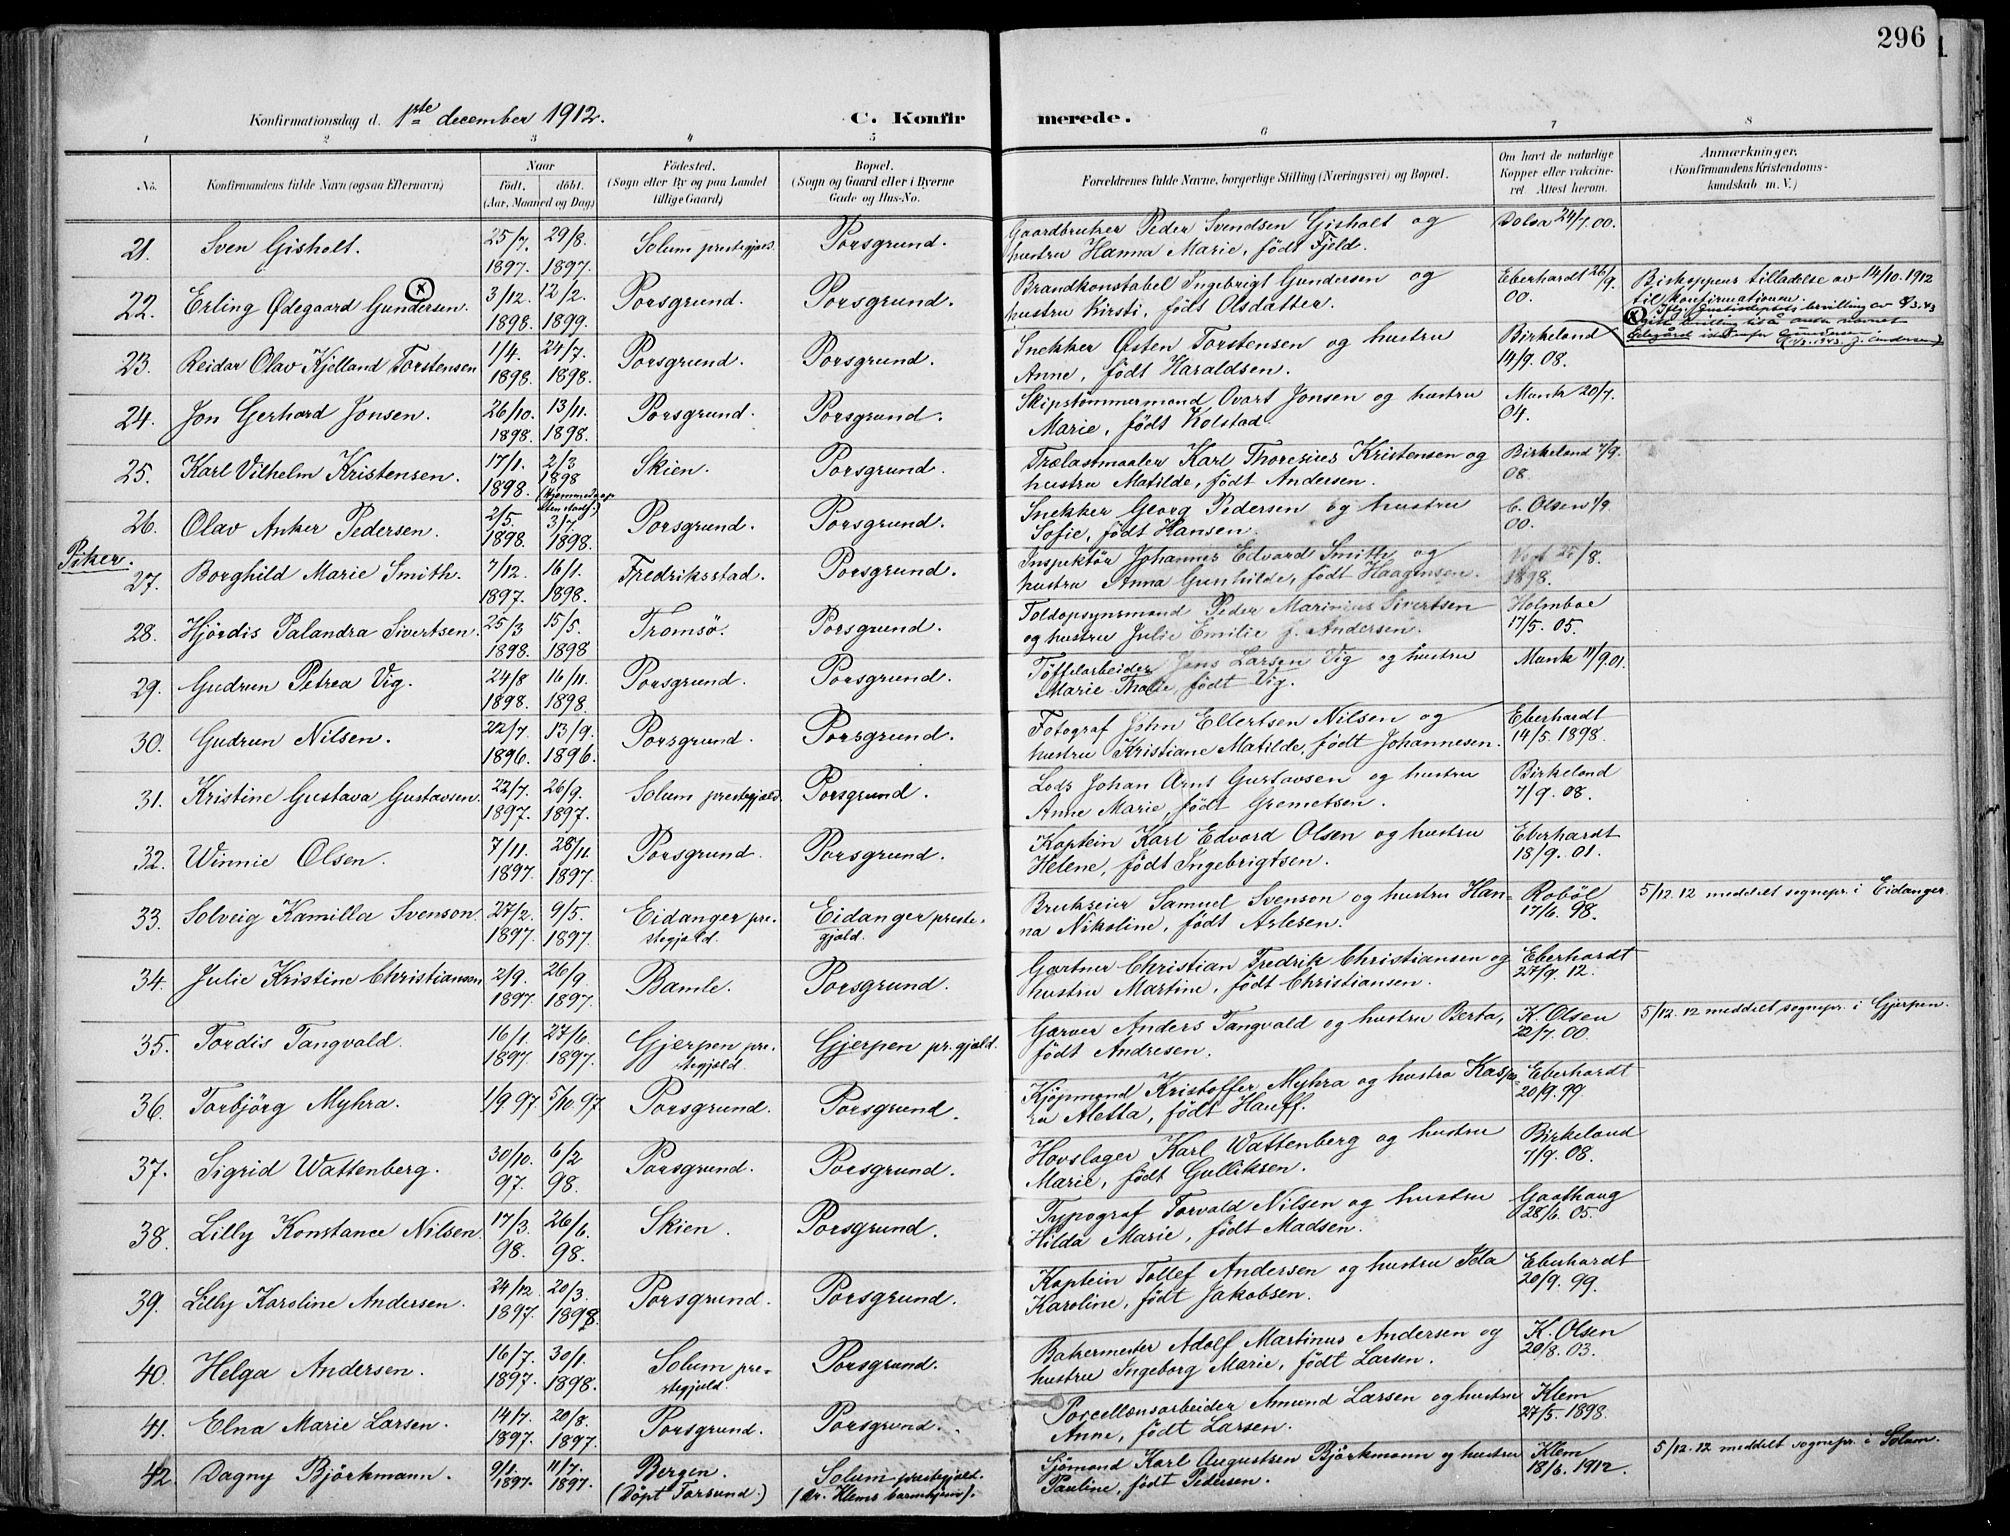 296
Konfirmationsdag d. 1ste december 1912. C. Konfirmerede.
1 2 3 4 5 6 7 8
No. Konfirmandens fulde Navn (ogsaa Efternavn) Naar født, døbt. (Aar, Maaned og Dag) Fødested. (Sogn eller By og paa Landet tillige Gaard) Bopæl. (Sogn og Gaard eller i Byerne Gade og Hus-No. Forældrenes fulde Navne, borgerlige Stilling (Næringsvei) og Bopæl. Om havt de naturlige Kopper eller vaccineret Attest herom. Anmærkninger. (Konfirmandens Kristendomskundskab m. V.)
21. Sven Gisholt. 25/7. 1897. 29/8. 1897. Solum prestegjæld. Porsgrund. Gaardbruker Peder Svendsen Gisholt og hustru Hanna Marie, født Fjeld. 24/7.00.
22. Erling Ødegaard Gundersen. 3/12. 1898. 12/2. 1899. Porsgrund. Porsgrund. Brandkonstabel Ingebrigt Gundersen og hustru Kirsti, født Olsdatter. Eberhardt 26/9. 00. Biskoppens tilladelse av 14/10.1912 til konfirmationen.
23. Reidar Olav Kjelland Torstensen 1/4. 1898. 24/7. 1898. Porsgrund. Porsgrund. Snekker Østen Torstensen og hustru Anne, født Haraldsen. Birkeland 14/9. 08.
24. Jon Gerhard Jonsen. 26/10. 1898. 13/11. 1898. Porsgrund. Porsgrund. Skipstømmermand Ovart Jonsen og hustru Marie, født Kolstad. Munk 20/7. 04.
25. Karl Vilhelm Kristensen. 17/1. 1898. 2/3 1898 Skien. Porsgrund. Trælastmaaler Karl Thoresius Kristensen og hustru Matilde, født Andersen. Birkeland 7/9. 08.
26. Olav Anker Pedersen. 2/5. 1898. 3/7 1898. Porsgrund. Porsgrund. Snekker Georg Pedersen og hustru Sofie, født Hansen. C. Olsen 1/9. 00.
Piker.
27. Borghild Marie Smith. 7/12. 1897. 16/1. 1898. Fredriksstad. Porsgrund. Inspektør Johannes Edvard Smith og hustru Anna Gunhilde, født Haagensen. 25/8. 1898.
28. Hjørdis Palandra Sivertsen. 25/3 1898. 15/5. 1898 Tromsø. Porsgrund. Toldopsynsmand Peder Marinius Sivertsen og hustru Julie Emilie f. Andersen. Holmboe 17/5. 05.
29. Gudrun Petrea Vig. 24/8 1898. 16/11. 1898. Porsgrund. Porsgrund. Tøffelarbeider Jens Larsen Vig og hustru Marie Thalie, født Vig. Munk 11/9.01.
30. Gudrun Nilsen. 22/7. 1896. 13/9. 1896. Porsgrund. Porsgrund. Fotograf John Ellertsen Nilsen og hustru Kristiane Matilde, født Johannesen. Eberhardt 14/5. 1898.
31. Kristine Gustava Gustavsen. 22/7. 1897. 26/9. 1897. Solum prestegjæld. Porsgrund. Lods Johan Arnt Gustavsen og hustru Anne Marie, født Gremetsen. Birkeland 7/9. 08.
32. Winnie Olsen. 7/11. 1897. 28/11. 1897. Porsgrund. Porsgrund. Kaptein Karl Edvard Olsen og hustru Helene, født Ingebrigtsen. Eberhardt 18/9. 01.
33. Solveig Kamilla Svenson. 27/2. 1897. 9/5. 1897. Eidanger prestegjæld. Eidanger prestegjæld. Brukseier Samuel Svenson og hustru Hanna Nikoline, født Arlesen. Robøl 17/6. 98. 5/12.12 meddelt sognepr. i Eidanger.
34. Julie Kristine Christiansen 2/9. 1897. 26/9. 1897. Bamle. Porsgrund. Gartner Christian Fredrik Christiansen og hustru Martine, født Christiansen. Eberhardt 27/9. 12.
35. Tordis Tangvald. 16/1. 1897. 27/6. 1897. Gjerpen prestegjæld. Gjerpen pr.gjæld. Garver Anders Tangvald og hustru Berta, født Andresen. K. Olsen 22/7. 00. 5/12.12 meddelt sognepr. i Gjerpen.
36. Torbjörg Myhra. 1/9 97. 5/10.97. Porsgrund. Porsgrund. Kjøpmand Kristoffer Myhra og hustru Kaspara Aletta, født Hauff. Eberhardt 20/9.99.
37. Sigrid Wattenberg. 30/10. 97. 6/2 98. Porsgrund. Porsgrund. Hovslager Karl Wattenberg og hustru Marie, født Gulliksen. Birkeland 7/9. 08.
38. Lilly Konstance Nilsen. 17/3. 98. 26/6. 98. Skien. Porsgrund. Typograf Torvald Nilsen og hustru Hilda Marie, født Madsen. Gaathaug 28/6. 05.
39. Lilly Karoline Andersen. 24/12. 1897. 20/3. 1898. Porsgrund. Porsgrund. Kaptein Tollef Andersen og hustru Ida Karoline, født Jakobsen. Eberhardt 20/9. 99.
40. Helga Andersen. 16/7. 1897. 30/1. 1898. Solum prestegjæld. Porsgrund. Bakermester Adolf Martinus Andersen og hustru Ingeborg Marie, født Larsen. K. Olsen 20/8. 03.
41. Elna Marie Larsen. 14/7. 1897. 20/8. 1897. Porsgrund. Porsgrund. Porcellænsarbeider Amund Larsen og hustru Anne, født Larsen. Klem 27/5. 1898.
42. Dagny Björkmann. 9/1. 1897. 11/7. 1897. Bergen. (Døpt Farsund.) Solum prestegjæld. (Dr. Klems barnehjem). Sjömand Karl Augustsen Björkmann og hustru Pauline, født Pedersen. Klem 18/6. 1912. 5/12.12 meddelt sognepr. i Solum.